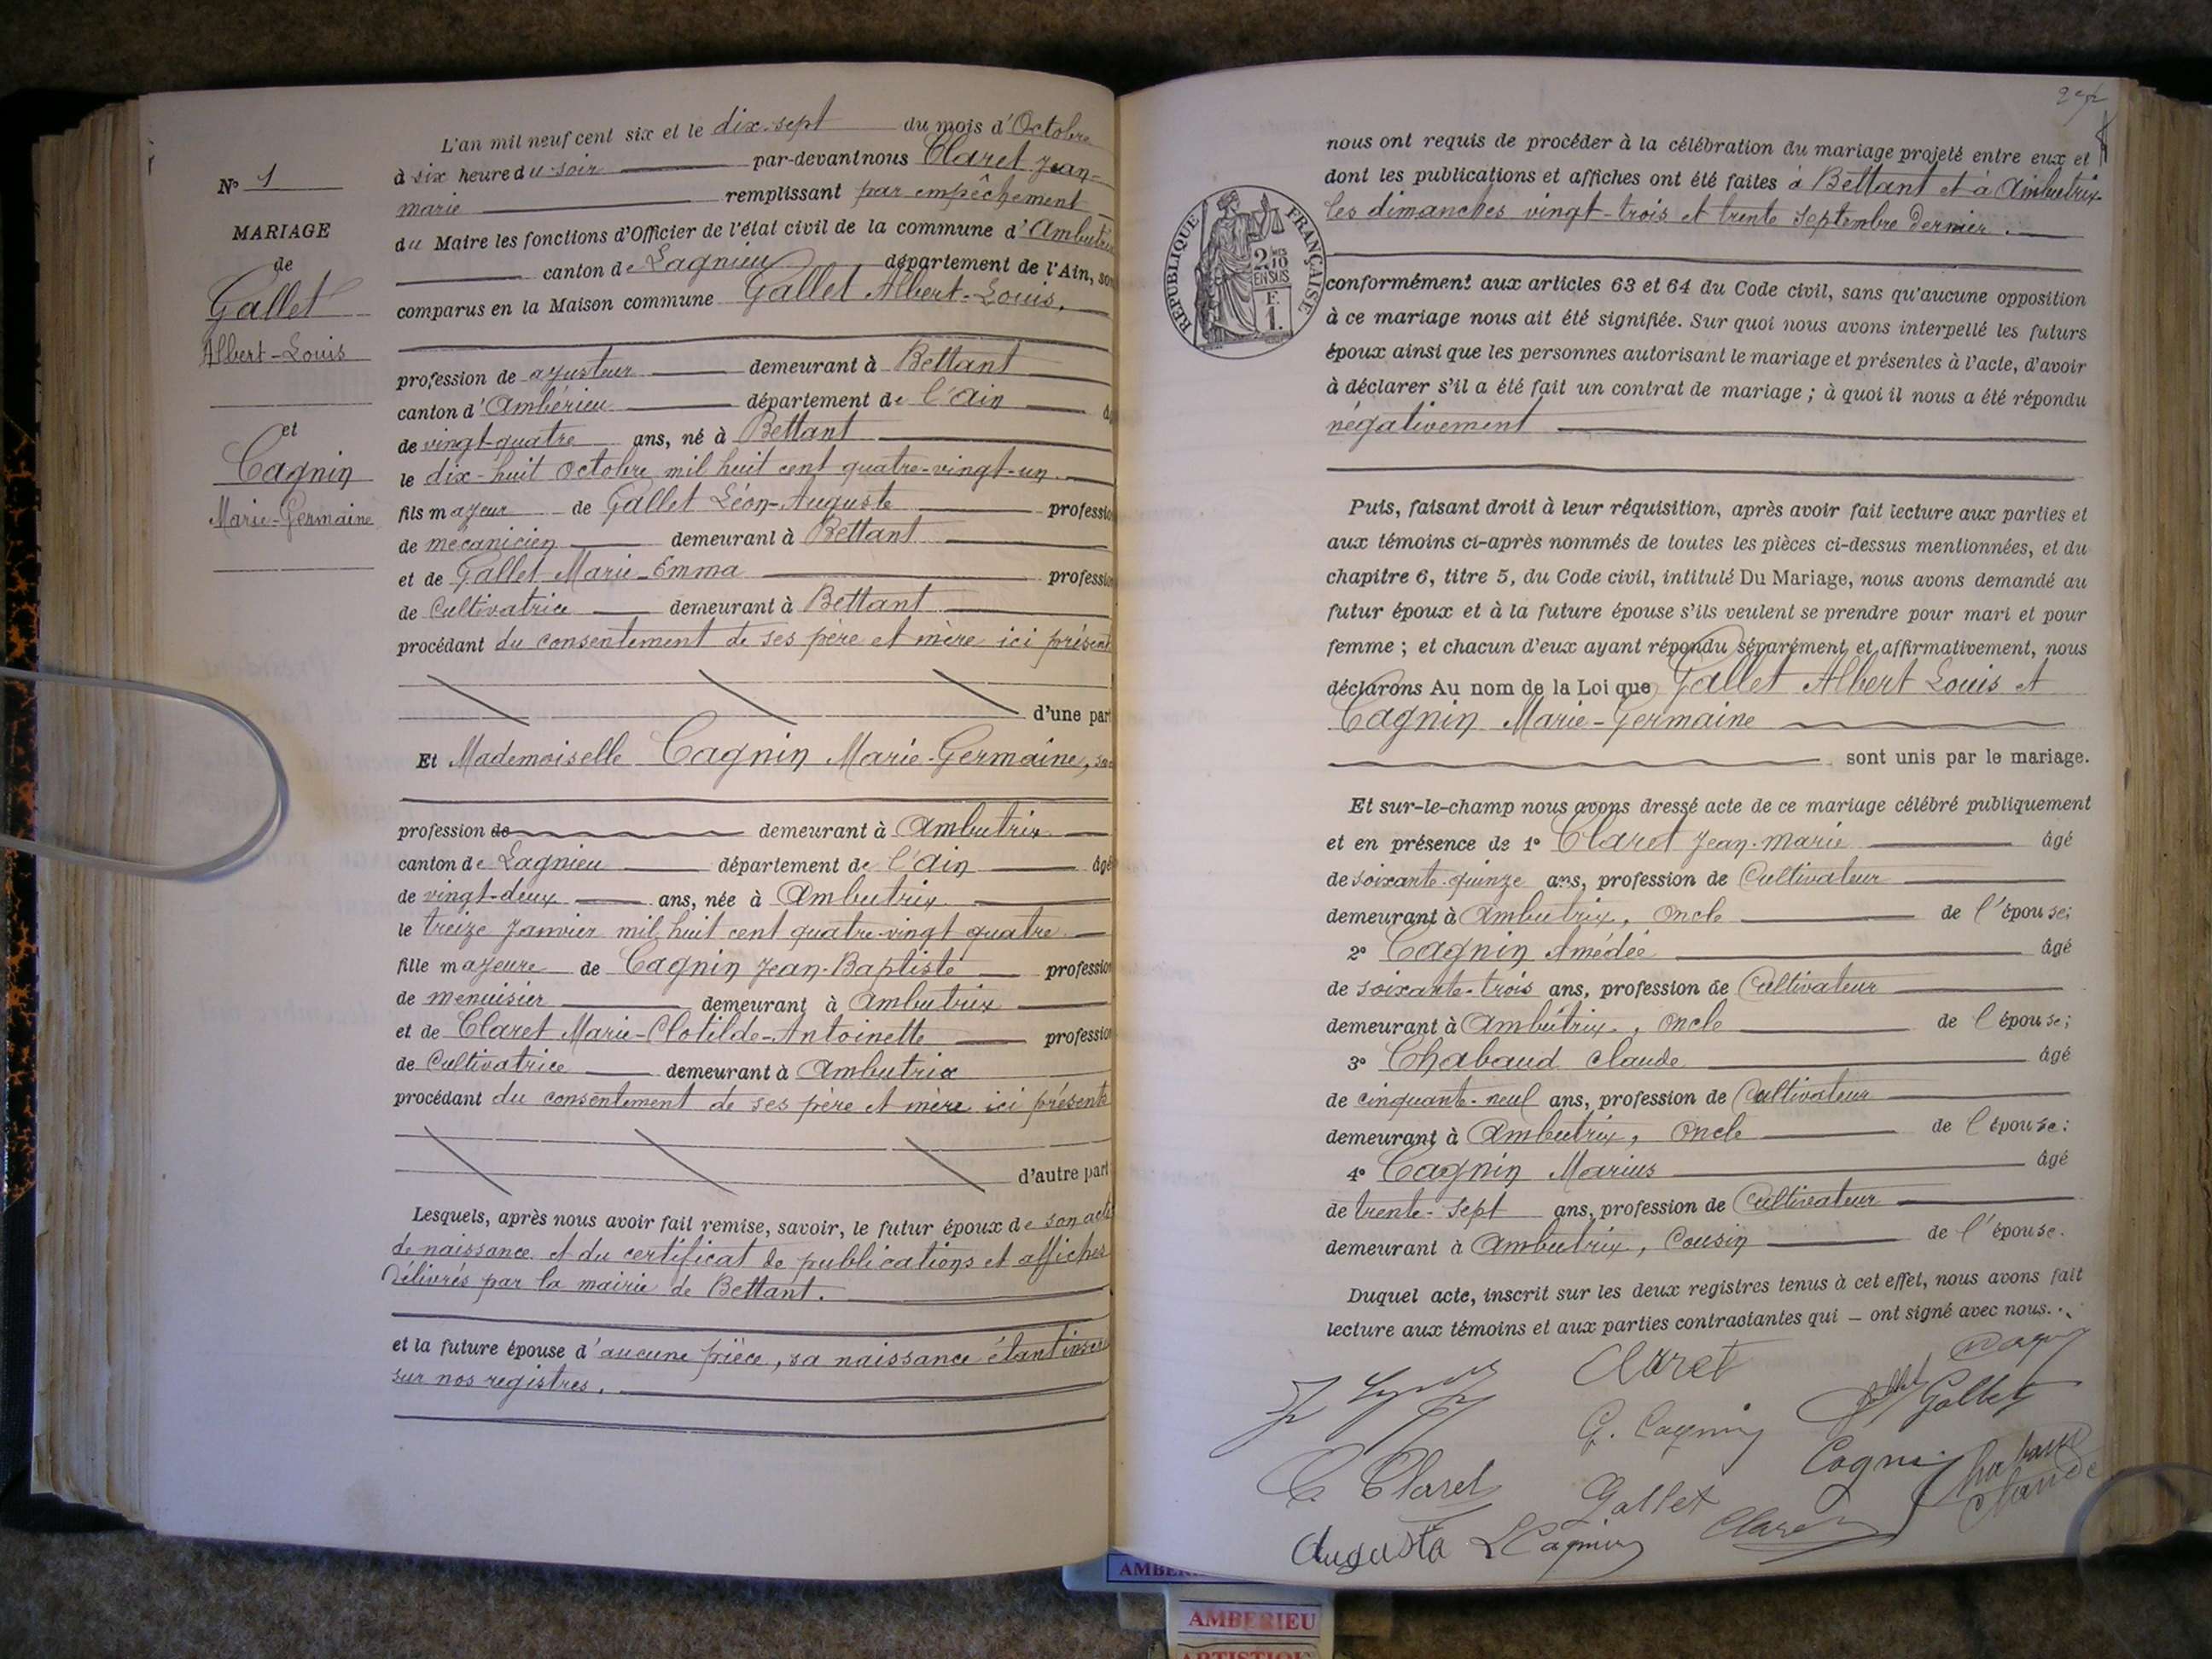 L'an mil neuf cent six et le dix-sept du mois d'Octobre
à six heure du soir par-devant nous Claret Jean-
marie remplissant par empêchement
du Maire les fonctions d'Officier de l'état civil de la commune d'Ambutrix
canton de Lagnieu département de l'Ain, sont
comparus en la Maison commune Gallet Albert-Louis,
N° 1
MARIAGE
de
Gallet
Albert-Louis
et
Cagnin
Marie-Germaine
profession de ajusteur demeurant à Bettant
canton d'Ambérieu département de l'Ain
de vingt-quatre ans, né à Bettant
le dix-huit Octobre mil huit cent quatre-vingt-un.
fils majeur de Gallet Léon-Auguste professio
de mécanicien demeurant à Bettant
et de Gallet Marie-Emma professio
de Cultivatrice demeurant à Bettant
procédant du consentement de ses père et mère ici présent
d'une part
Et Mademoiselle Cagnin Marie-Germaine,
profession de demeurant à Ambutrix
canton de Lagnieu département de l'Ain âgé
de vingt-deux ans, née à Ambutrix
le treize Janvier mil huit cent quatre-vingt quatre.
fille majeure de Cagnin Jean-Baptiste profession
de menuisier demeurant à Ambutrix
et de Claret Marie-Clotilde-Antoinette profession
de Cultivatrice demeurant à Ambutrix
procédant du consentement de ses père et mère ici présents
d'autre part
Lesquels, après nous avoir fait remise, savoir, le futur époux de son acte
de naissance et du certificat de publications et affiches
délivrés par la mairie de Bettant.
et la future épouse d'aucune pièce, sa naissance étant inscrite
sur nos registres.
nous ont requis de procéder à la célébration du mariage projeté entre eux et
dont les publications et affiches ont été faites à Bettant et à Ambutrix
les dimanches vingt-trois et trente septembre dernier.
RÉPUBLIQUE FRANÇAISE
2/10
EN SUS
F.
1.
conformément aux articles 63 et 64 du Code civil, sans qu'aucune opposition
à ce mariage nous ait été signifiée. Sur quoi nous avons interpellé les futurs
époux ainsi que les personnes autorisant le mariage et présentes à l'acte, d'avoir
à déclarer s'il a été fait un contrat de mariage ; à quoi il nous a été répondu
négativement
Puis, faisant droit à leur réquisition, après avoir fait lecture aux parties et
aux témoins ci-après nommés de toutes les pièces ci-dessus mentionnées, et du
chapitre 6, titre 5, du Code civil, intitulé Du Mariage, nous avons demandé au
futur époux et à la future épouse s'ils veulent se prendre pour mari et pour
femme ; et chacun d'eux ayant répondu séparément et affirmativement, nous
déclarons Au nom de la Loi que Gallet Albert Louis et
Cagnin Marie-Germaine
sont unis par le mariage.
Et sur-le-champ nous avons dressé acte de ce mariage célébré publiquement
et en présence de 1° Claret Jean-Marie âgé
de soixante-quinze ans, profession de Cultivateur
demeurant à Ambutrix, Oncle de l'épouse;
2° Cagnin Amédée âgé
de soixante-trois ans, profession de Cultivateur
demeurant à Ambutrix, Oncle de l'épouse;
3° Chabaud Claude âgé
de cinquante-neuf ans, profession de Cultivateur
demeurant à Ambutrix, Oncle de l'épouse:
4° Cagnin Marius âgé
de trente-sept ans, profession de Cultivateur
demeurant à Ambutrix, Cousin de l'épouse.
Duquel acte, inscrit sur les deux registres tenus à cet effet, nous avons fait
lecture aux témoins et aux parties contractantes qui – ont signé avec nous.
Claret
G. Cagnin
Gallet
C. Claret
Gallet
Cagnin
Chabaud
Claude
Augusta L Cagnin Claret
AMBERIEU